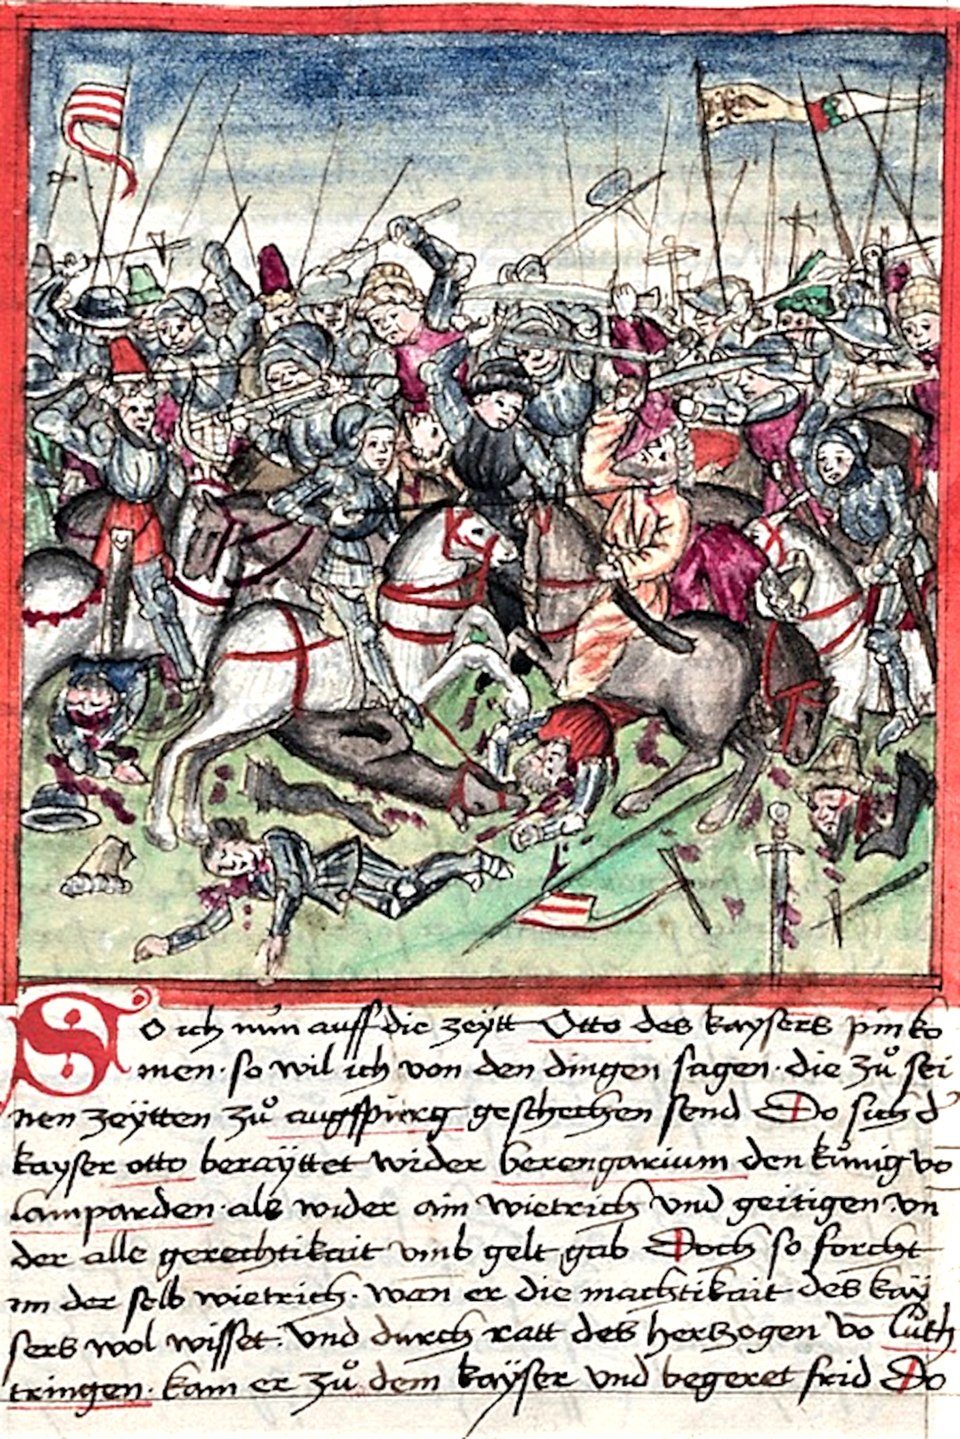 So ich nun auff die zeÿtt Otto des kaysers pin ko
men · so wil ich von den dingen sagen · die zů sei
nen zeÿtten zů augspurg geschechen send Do sich d'
kayser otto beraÿttet wider berengarium den künig vo
lamparden · als wider ain wietrich vnd geitigen · vn
der alle gerechtikait vmb gelt gab Doch so forcht
im der selb wietrich · wan er die machtikait des kaÿ
sers wol wisset · Vnd durch ratt des hertzogen vo luth
tringen · kam er zů dem kaÿser vnd begeret frid Do